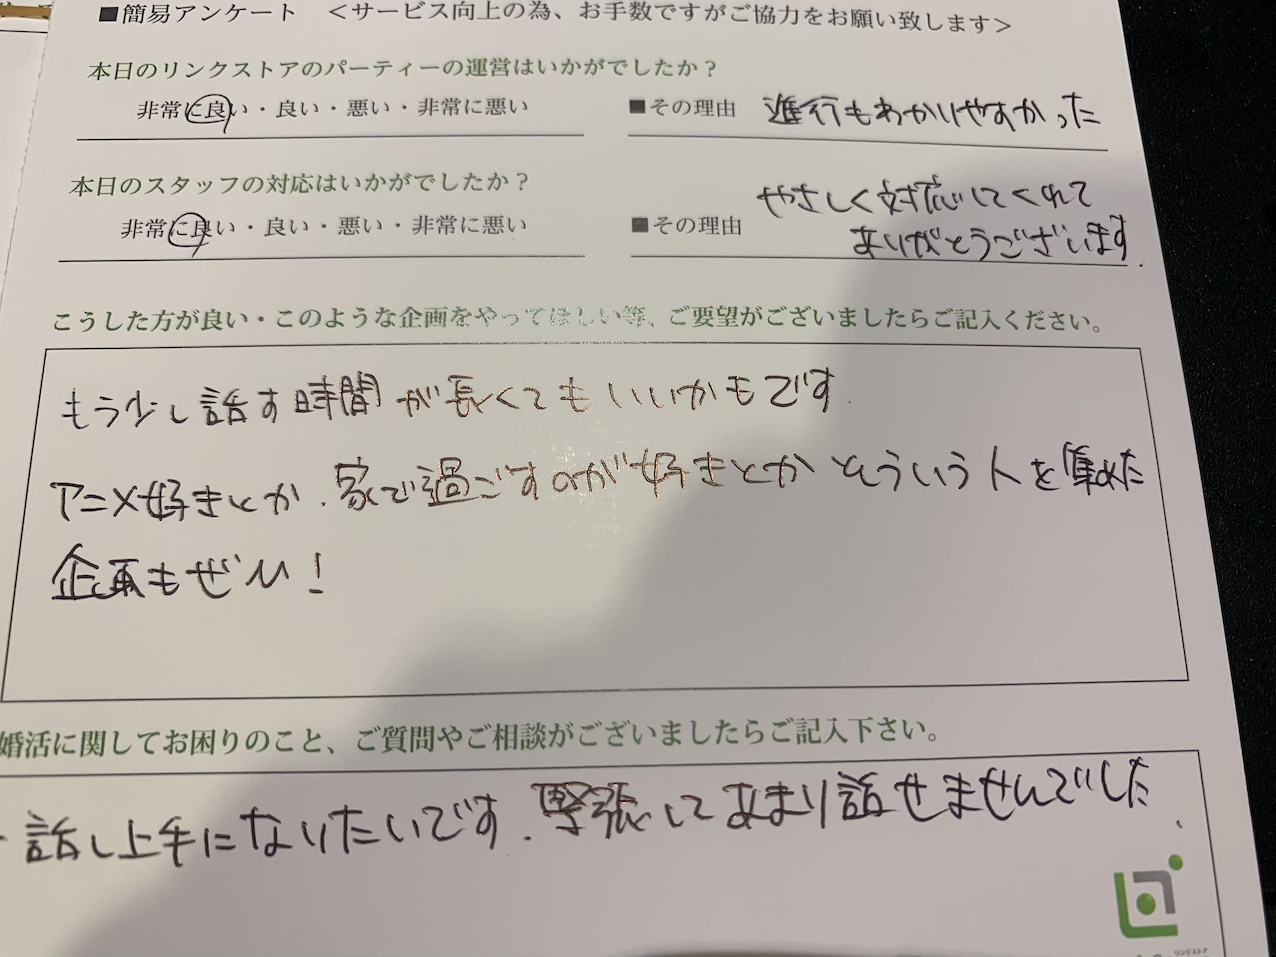 ■簡易アンケート ＜サービス向上の為、お手数ですがご協力をお願い致します＞
本日のリンクストアのパーティーの運営はいかがでしたか？
非常に良い・良い・悪い・非常に悪い ■その理由 進行もわかりやすかった
本日のスタッフの対応はいかがでしたか？
非常に良い・良い・悪い・非常に悪い ■その理由 やさしく対応してくれて
ありがとうございます.
こうした方が良い・このような企画をやってほしい等、ご要望がございましたらご記入ください。
もう少し話す時間が長くてもいいかもです.
アニメ好きとか.家で過ごすのが好きとかそういう人を集めた
企画もぜひ!
婚活に関してお困りのこと、ご質問やご相談がございましたらご記入下さい。
・話し上手になりたいです.緊張してあまり話せませんでした.
リンクストア